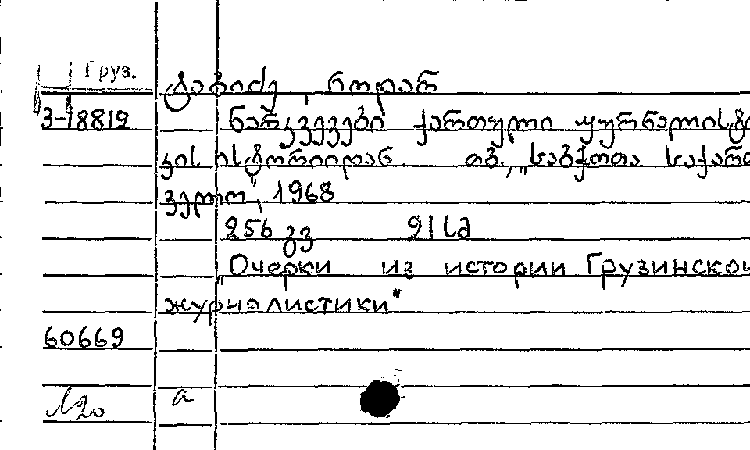 Груз.
ტაბიძე, ნოდარ
3-18819
ნარკვევები ქართული ჟურნალისტი
კის ისტორიიდან. თბ., „საბჭოთა საქართ
ველო“, 1968
256 გვ 21 სმ
„Очерки из истории Грузинской
журналистики“
60669
а